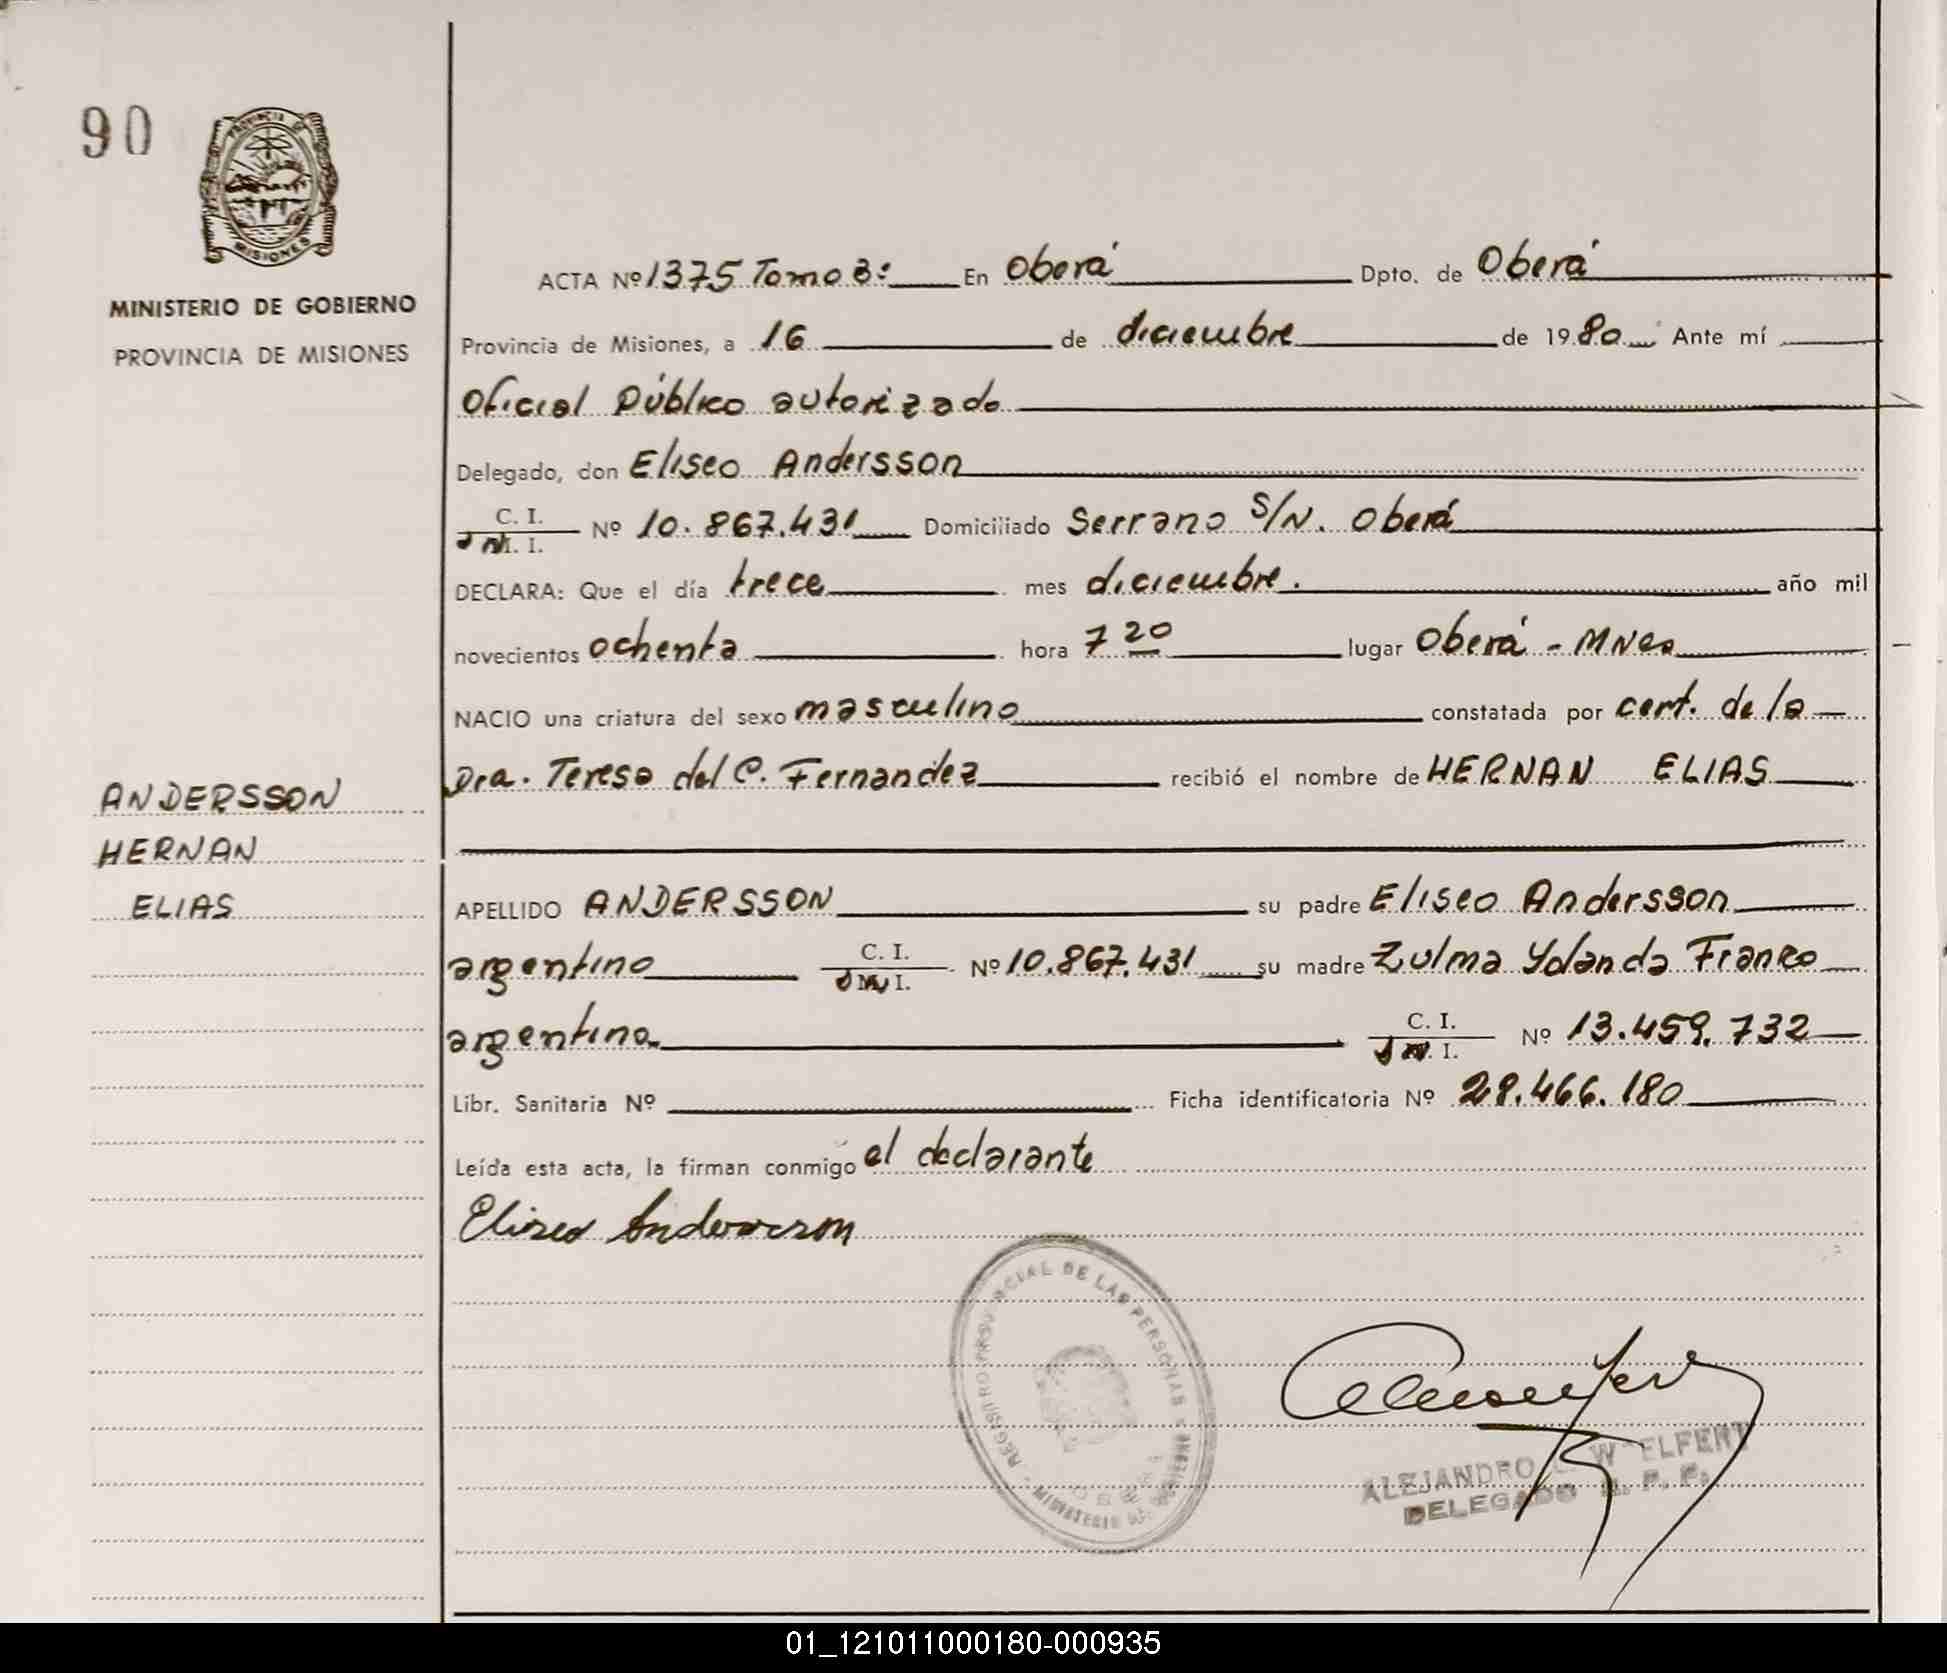 90
PROVINCIA DE
MISIONES
MINISTERIO DE GOBIERNO
PROVINCIA DE MISIONES
ACTA Nº 1375 Tomo 3º En Oberá Dpto. de Oberá
Provincia de Misiones, a 16 de diciembre de 1980 Ante mí
Oficial Público autorizado
Delegado, don Eliseo Andersson
C. I.
M. I. Nº 10.867.431 Domiciliado Serrano S/N. Oberá
DECLARA: Que el día trece mes diciembre. año mil
novecientos ochenta hora 7 20 lugar Oberá - Mnes
NACIO una criatura del sexo masculino constatada por cert. de la
Dra. Teresa del C. Fernandez recibió el nombre de HERNAN ELIAS
ANDERSSON
HERNAN
ELIAS
APELLIDO ANDERSSON su padre Eliseo Andersson
argentino C. I.
M. I. Nº 10.867.431 su madre Zulma Yolanda Franco
argentina C. I.
M. I. Nº 13.459.732
Libr. Sanitaria Nº Ficha identificatoria Nº 28.466.180
Leída esta acta, la firman conmigo el declarante
Eliseo Andersson
REGISTRO PROVINCIAL DE LAS PERSONAS
MINISTERIO DE GOBIERNO
ALEJANDRO
DELEGADO R. P. P.
01_121011000180-000935